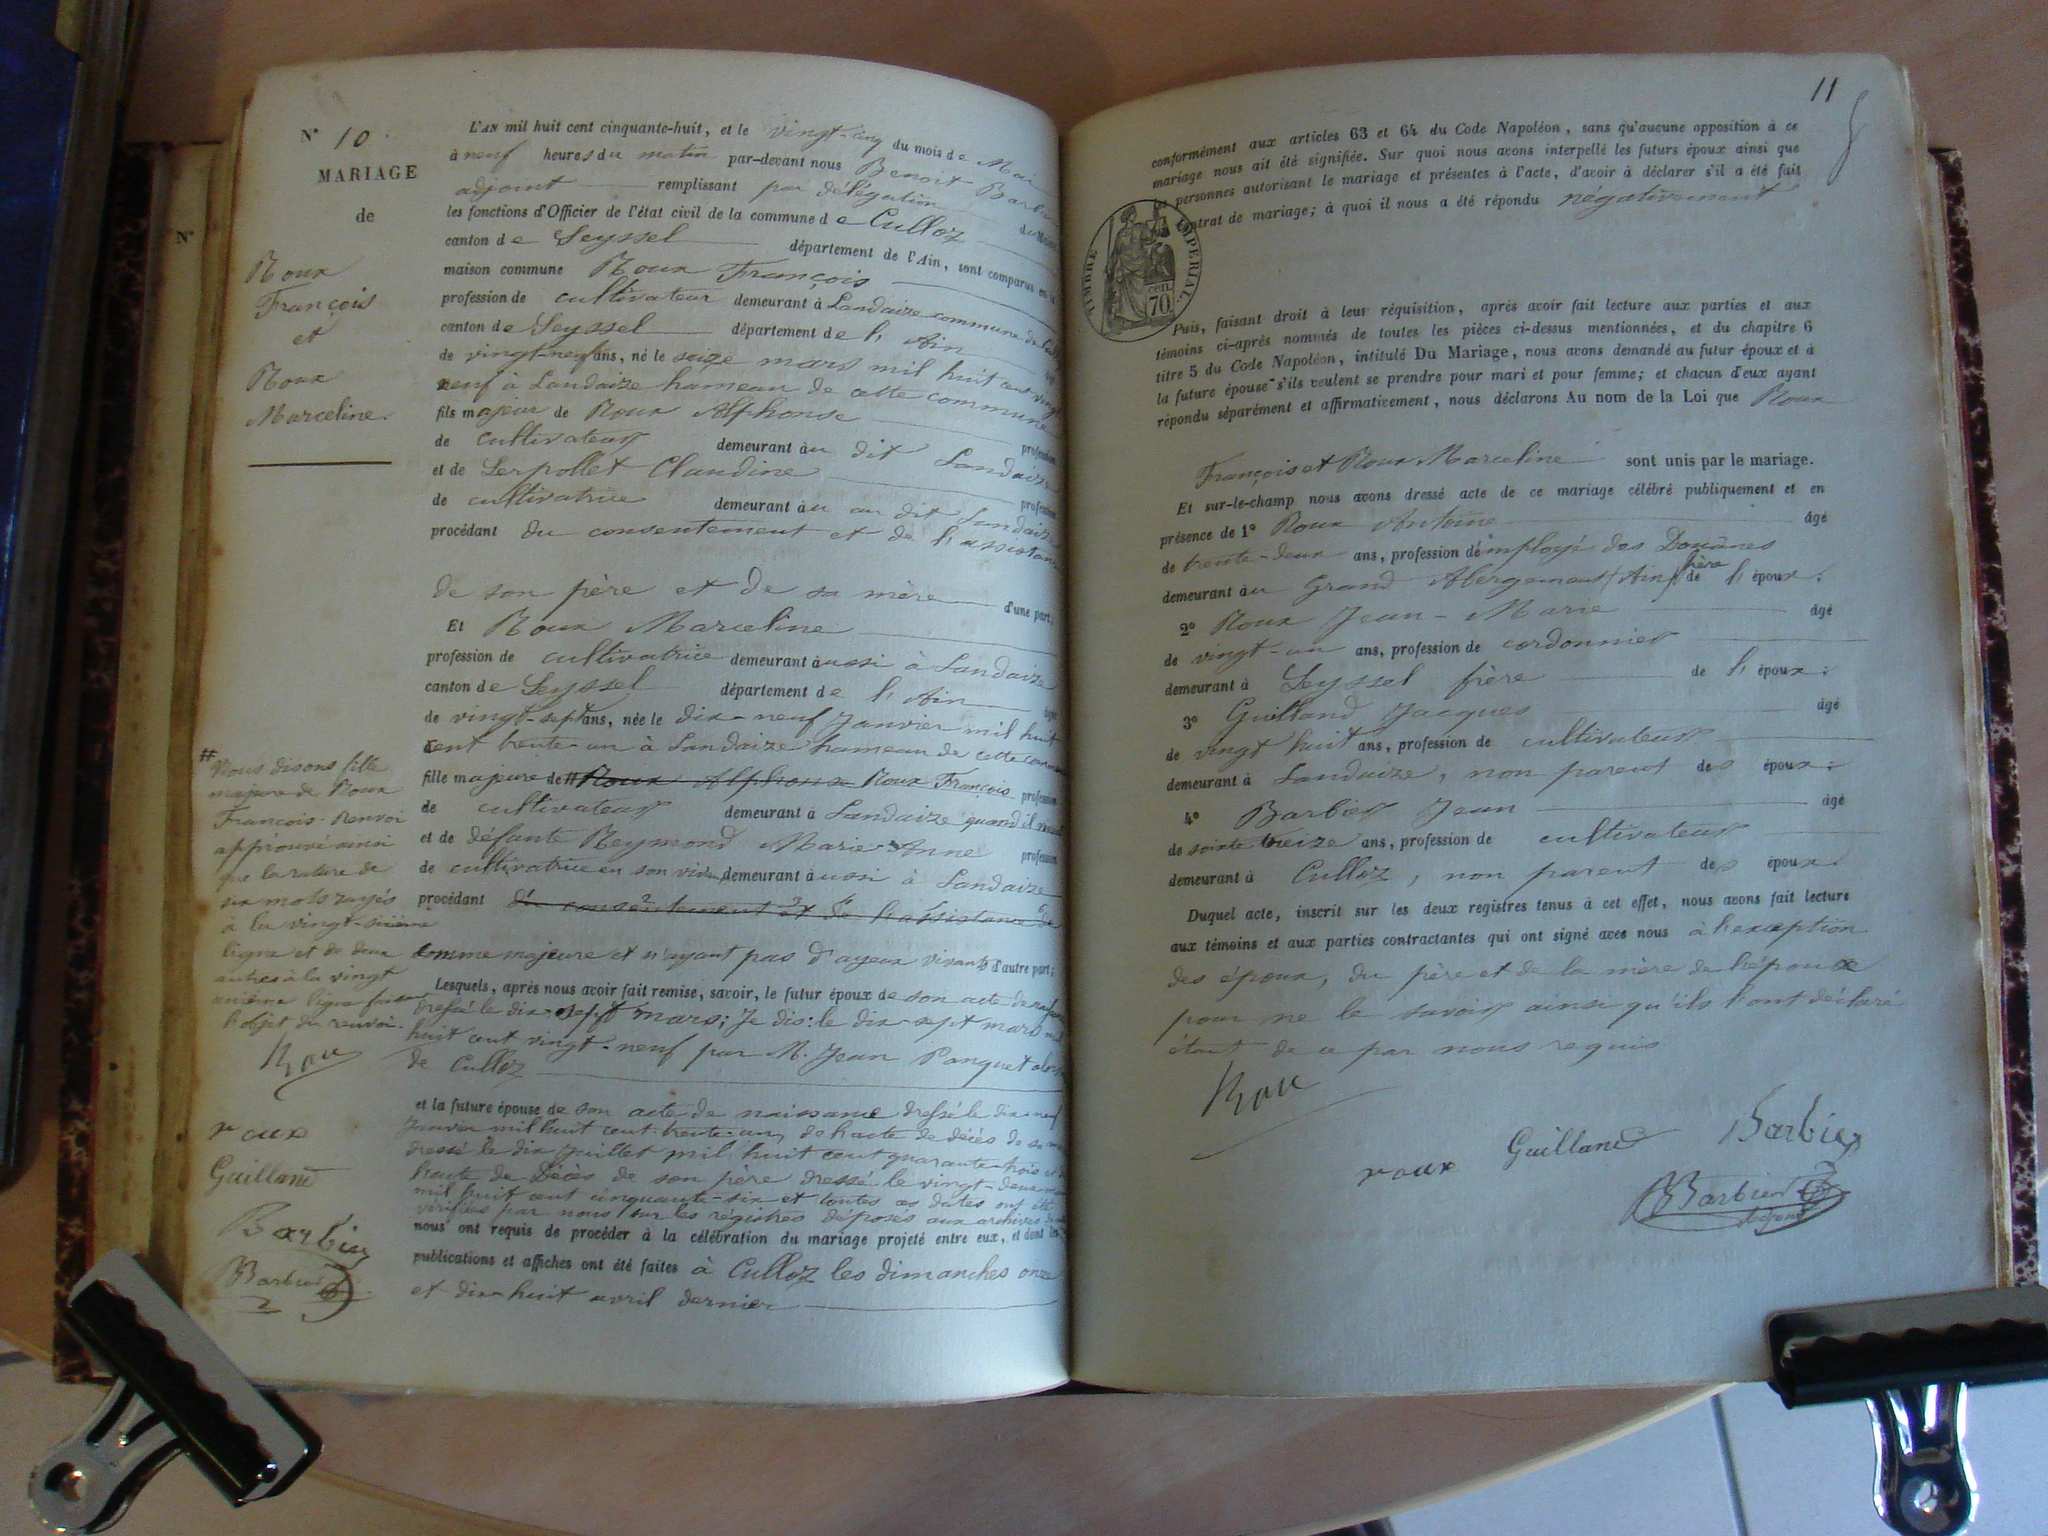 N° 10.
MARIAGE
de
Roux
François
et
Roux
Marceline.
L'AN mil huit cent cinquante-huit, et le vingt-cinq du mois de Mai
à neuf heures du matin par-devant nous Benoit Barbier
adjoint remplissant par délégation du Maire
les fonctions d'Officier de l'état civil de la commune de Culloz
canton de Seyssel département de l'Ain, sont comparus en la
maison commune Roux François
profession de cultivateur demeurant à Landaize commune de
canton de Seyssel département de l'Ain
de vingt-neuf ans, né le seize mars mil huit cent vingt
neuf à Landaize hameau de cette commune
fils majeur de Roux Alphonse profession
de cultivateur demeurant au dit Landaize
et de Serpollet Claudine profession
de cultivatrice demeurant au au dit Landaize
procédant du consentement et de l'assistance
de son père et de sa mère d'une part;
Et Roux Marceline
profession de cultivatrice demeurant aussi à Landaize
canton de Seyssel département de l'Ain âgée
de vingt-sept ans, née le dix-neuf Janvier mil huit
cent trente-un à Landaize hameau de cette
fille majeure de # Roux Alphonse Roux François profession
de cultivateur demeurant à Landaize quand il vivait
et de défunte Reymond Marie-Anne profession
de cultivatrice en son vivant demeurant aussi à Landaize
procédant du consentement et de l'assistance de
comme majeure et n'ayant pas d'ayeux vivants d'autre part;
Lesquels, après nous avoir fait remise, savoir, le futur époux de son acte de
dressé le dix-sept mars; Je dis: le dix-sept mars mil
huit cent vingt-neuf par M. Jean Panquet
de Culloz
et la future épouse de son acte de naissance dressé le dix-neuf
Janvier mil huit cent trente-un, de l'acte de décès de sa
dressé le dix Juillet mil huit cent quarante-trois et de
l'acte de décès de son père dressé le vingt-deux
mil huit cent cinquante-six et toutes ces dates ont été
vérifiées par nous sur les régistres déposés aux archives
nous ont requis de procéder à la célébration du mariage projeté entre eux, et dont les
publications et affiches ont été faites à Culloz les dimanches onze
et dix-huit avril dernier
# Nous disons fille
majeure de Roux
François. Renvoi
approuvé ainsi
que la rature de
six mots rayés
à la vingt-sixième
ligne et de deux
autres à la vingt
ligne faisant
l'objet du renvoi.
Rou
roux
Guilland
Barbier
BBarbier
N°
11
conformément aux articles 63 et 64 du Code Napoléon, sans qu'aucune opposition à ce
mariage nous ait été signifiée. Sur quoi nous avons interpellé les futurs époux ainsi que
personnes autorisant le mariage et présentes à l'acte, d'avoir à déclarer s'il a été fait
contrat de mariage; à quoi il nous a été répondu négativement
TIMBRE IMPERIAL
70 cen.
Puis, faisant droit à leur réquisition, après avoir fait lecture aux parties et aux
témoins ci-après nommés de toutes les pièces ci-dessus mentionnées, et du chapitre 6
titre 5 du Code Napoléon, intitulé Du Mariage, nous avons demandé au futur époux et à
la future épouse s'ils veulent se prendre pour mari et pour femme; et chacun d'eux ayant
répondu séparément et affirmativement, nous déclarons Au nom de la Loi que Roux
François et Roux Marceline sont unis par le mariage.
Et sur-le-champ nous avons dressé acte de ce mariage célébré publiquement et en
présence de 1° Roux Antoine âgé
de trente-deux ans, profession d'employé des Douânes
demeurant au Grand Abergement (Ain) frère de l'époux.
2° Roux Jean-Marie âgé
de vingt-un ans, profession de cordonnier
demeurant à Seyssel frère de l'époux:
3° Guilland Jacques âgé
de vingt huit ans, profession de cultivateur
demeurant à Landaize, non parent des époux:
4° Barbier Jean âgé
de soixante treize ans, profession de cultivateur
demeurant à Culloz, non parent des époux.
Duquel acte, inscrit sur les deux registres tenus à cet effet, nous avons fait lecture
aux témoins et aux parties contractantes qui ont signé avec nous à l'exception
des époux, du père et de la mère de l'époux
pour ne le savoir ainsi qu'ils l'ont déclaré
étant de ce par nous requis
Rou
roux Guilland Barbier
BBarbier